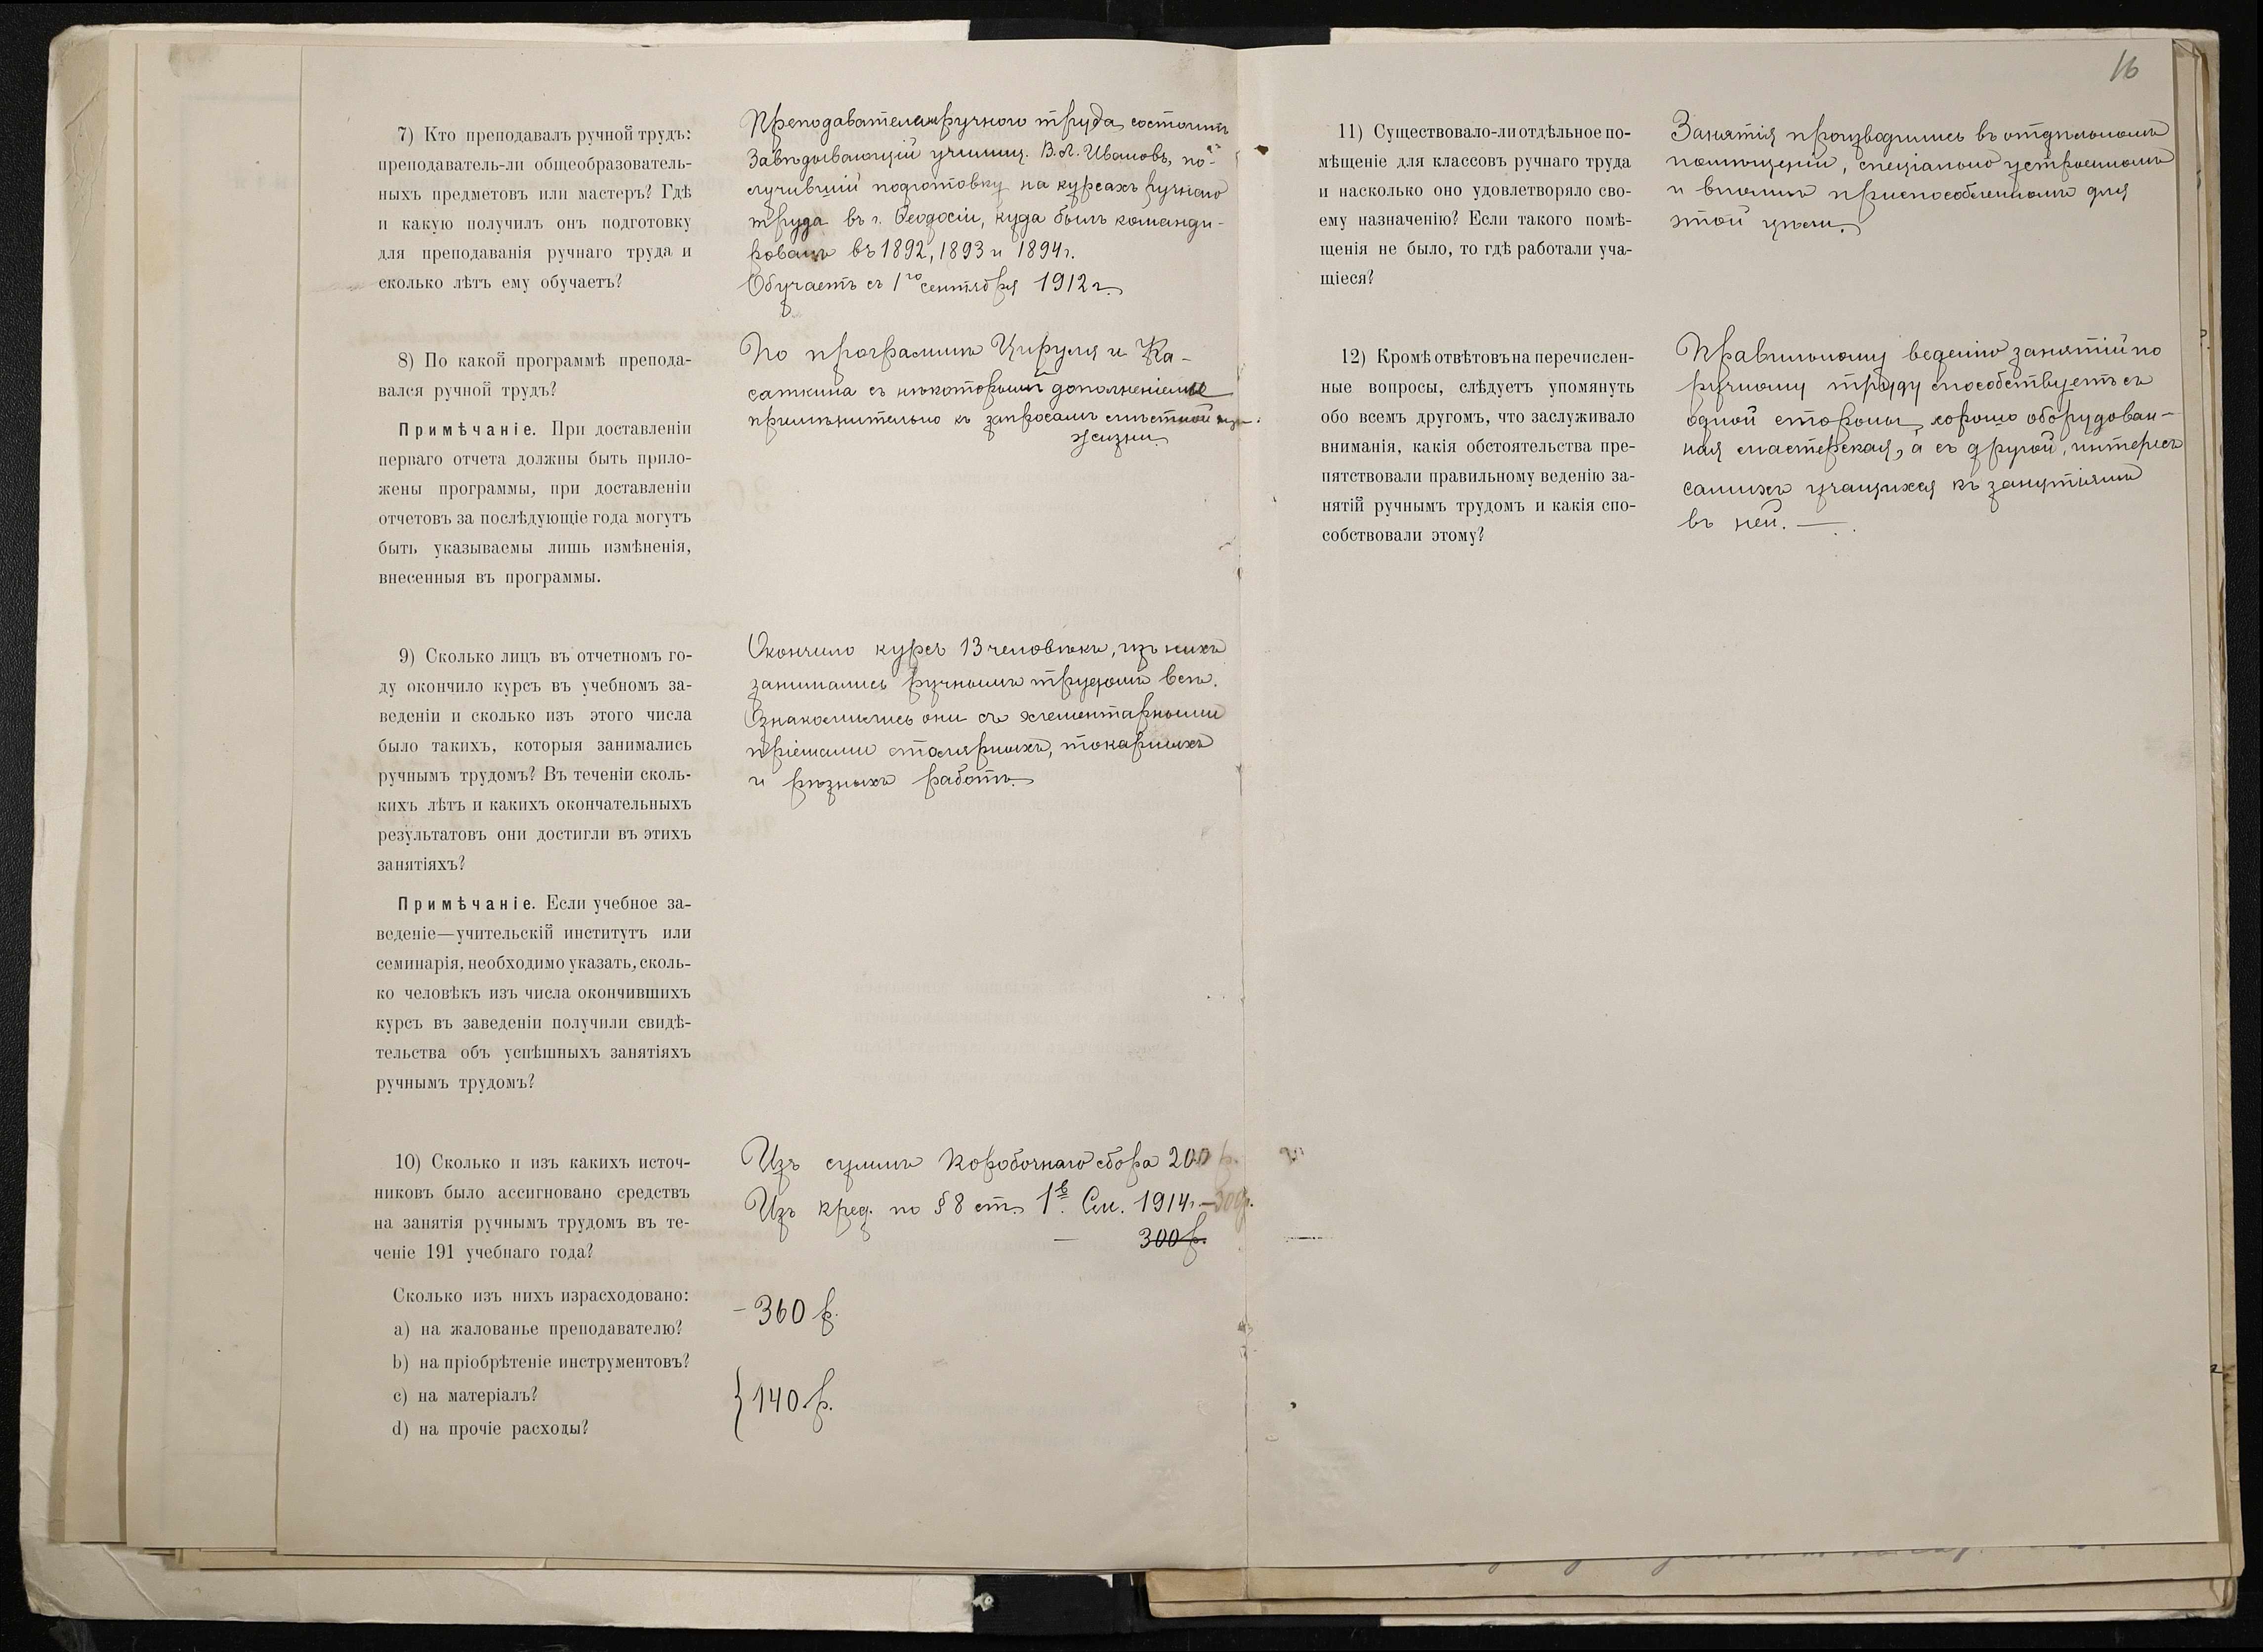 16
7) Кто преподавалъ ручной трудъ:
преподаватель-ли общеобразователь-
ныхъ предметовъ или мастеръ? Гдѣ
и какую получилъ онъ подготовку
для преподаванія ручнаго труда и
сколько лѣтъ ему обучаетъ?
Преподавателемъ ручного труда состоитъ
Завѣдывающій училищ. В. Л. Ивановъ, по-
лучившій подготовку на курсахъ ручного
труда въ г. Ѳеодосіи, куда былъ команди-
рованъ въ 1892, 1893 и 1894 г.
Обучаетъ съ 1го сентября 1912 г.
8) По какой программѣ препода-
вался ручной трудъ?
Примѣчаніе. При доставленіи
перваго отчета должны быть прило-
жены программы, при доставленіи
отчетовъ за послѣдующіе года могутъ
быть указываемы лишь измѣненія,
внесенныя въ программы.
По программѣ Цируля и Ка-
саткина съ нѣкоторымъ дополненіемъ
примѣнительно къ запросамъ мѣстной
жизни.
9) Сколько лицъ въ отчетномъ го-
ду окончило курсъ въ учебномъ за-
веденіи и сколько изъ этого числа
было такихъ, которыя занимались
ручнымъ трудомъ? Въ теченіи сколь-
кихъ лѣтъ и какихъ окончательныхъ
результатовъ они достигли въ этихъ
занятіяхъ?
Примѣчаніе. Если учебное за-
веденіе—учительскій институтъ или
семинарія, необходимо указать, сколь-
ко человѣкъ изъ числа окончившихъ
курсъ въ заведеніи получили свидѣ-
тельства объ успѣшныхъ занятіяхъ
ручнымъ трудомъ?
Окончило курсъ 13 человѣкъ, изъ нихъ
занимались ручнымъ трудомъ всѣ.
Ознакомились они съ элементарными
пріемами столярныхъ, токарныхъ
и рѣзныхъ работъ.
10) Сколько и изъ какихъ источ-
никовъ было ассигновано средствъ
на занятія ручнымъ трудомъ въ те-
ченіе 191 учебнаго года?
Сколько изъ нихъ израсходовано:
a) на жалованье преподавателю?
b) на пріобрѣтеніе инструментовъ?
c) на матеріалъ?
d) на прочіе расходы?
Изъ суммъ Коробочнаго сбора 200 р.
Изъ кред. по § 8 ст. 1й См. 1914 г. – 300 р.
300 р.
– 360 р.
{ 140 р.
11) Существовало-ли отдѣльное по-
мѣщеніе для классовъ ручнаго труда
и насколько оно удовлетворяло сво-
ему назначенію? Если такого помѣ-
щенія не было, то гдѣ работали уча-
щіеся?
Занятія производились въ отдѣльномъ
помѣщеніи, спеціально устроенномъ
и вполнѣ приспособленномъ для
этой цѣли.
12) Кромѣ отвѣтовъ на перечислен-
ные вопросы, слѣдуетъ упомянуть
обо всемъ другомъ, что заслуживало
вниманія, какія обстоятельства пре-
пятствовали правильному веденію за-
нятій ручнымъ трудомъ и какія спо-
собствовали этому?
Правильному веденію занятій по
ручному труду способствуетъ съ
одной стороны хорошо оборудован-
ная мастерская, а съ другой, интересъ
самихъ учащихся къ занятіямъ
въ ней. —